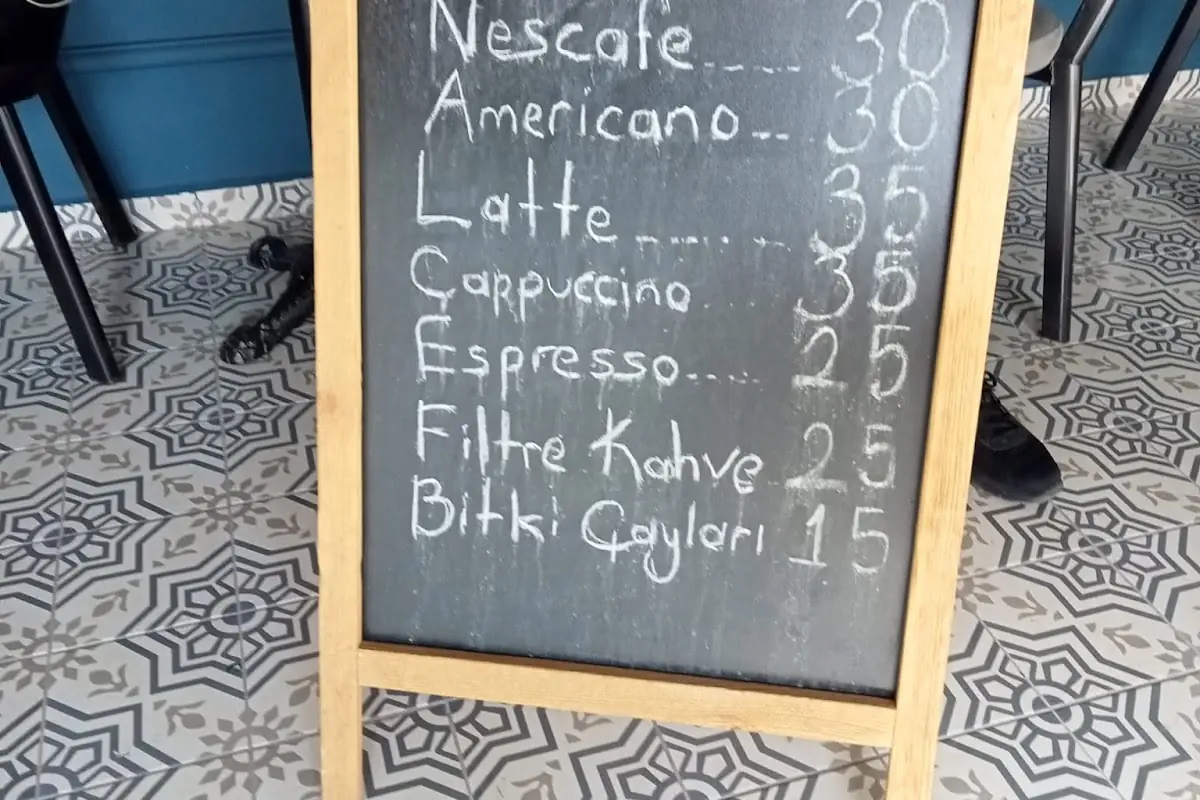 Nescafe.... 30
Americano.. 30
Latte........ 35
Cappuccino.... 35
Espresso.... 25
Filtre Kahve 25
Bitki Çayları 15